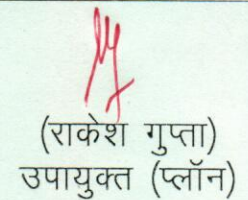 (राकेश गुप्ता)
उपायुक्त (प्लॉन)